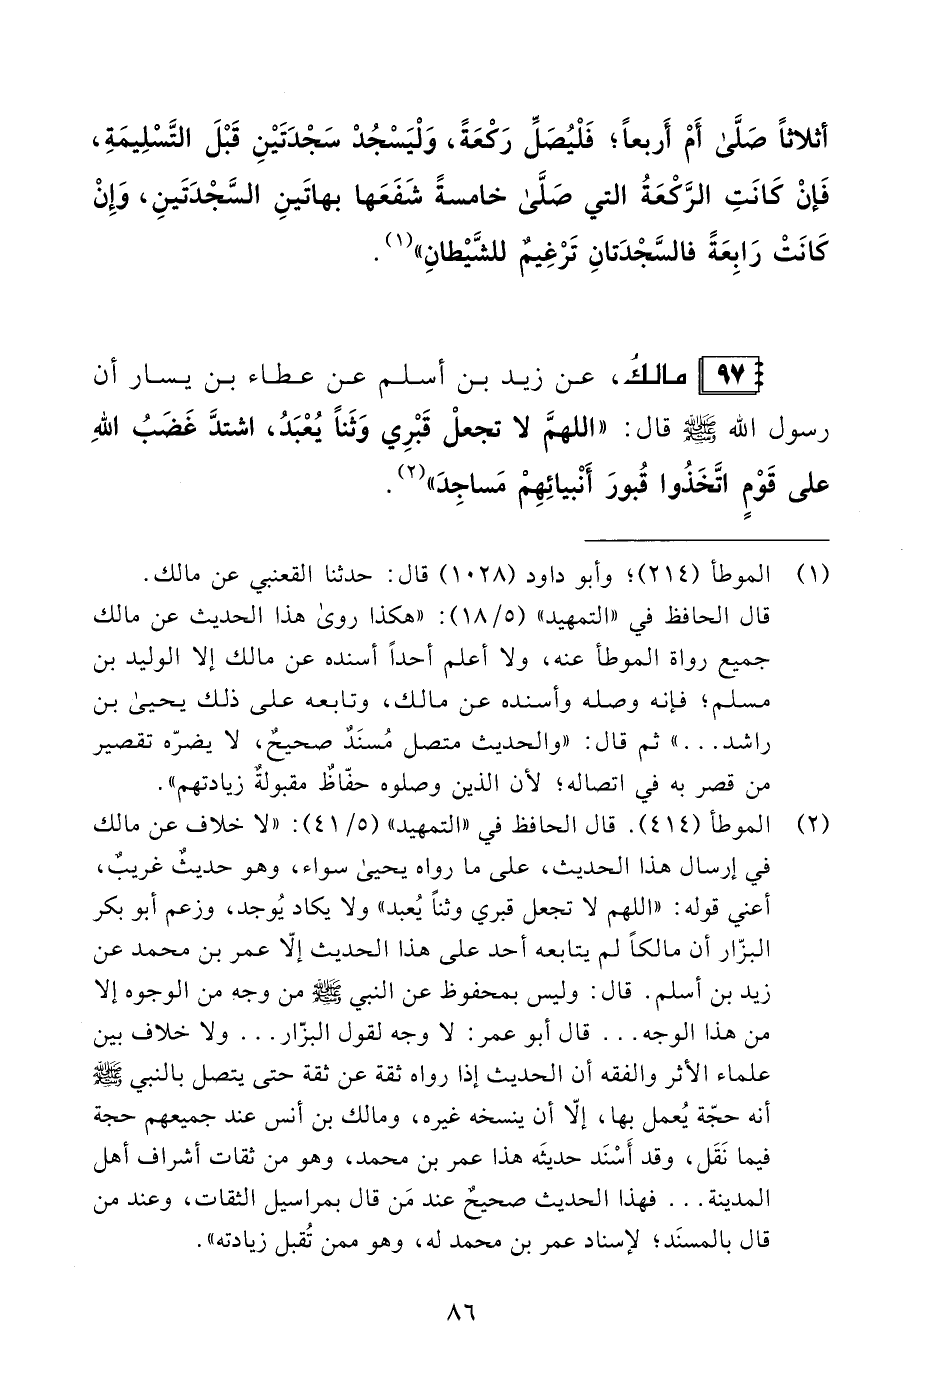 أثلاثاً صَلَّىٰ أَمْ أربعاً؛ فَلْيُصَلِّ رَكْعَةً، وَلْيَسْجُدْ سَجْدَتَيْنِ قَبْلَ التَّسْلِيمَةِ،
فَإنْ كَانَتِ الرَّكْعَةُ التي صَلَّىٰ خامسةً شَفَعَها بهاتَينِ السَّجْدَتَينِ، وَإنْ
كَانَتْ رَابِعَةً فالسَّجْدَتانِ تَرْغِيمٌ للشَّيْطانِ»(١).
٩٧ مالكُ، عن زيد بن أسلم عن عطاء بن يسار أن
رسول الله ﷺ قال: «اللهمَّ لا تجعلْ قَبْرِي وَثَناً يُعْبَدُ، اشتدَّ غَضَبُ اللهِ
على قَوْمٍ اتَّخَذُوا قُبورَ أَنْبيائِهِمْ مَساجِدَ»(٢).
(١) الموطأ (٢١٤)؛ وأبو داود (١٠٢٨) قال: حدثنا القعنبي عن مالك.
قال الحافظ في «التمهيد» (١٨/٥): «هكذا روىٰ هذا الحديث عن مالك
جميع رواة الموطأ عنه، ولا أعلم أحداً أسنده عن مالك إلا الوليد بن
مسلم؛ فإنه وصله وأسنده عن مالك، وتابعه على ذلك يحيىٰ بن
راشد...» ثم قال: «والحديث متصل مُسنَدٌ صحيحٌ، لا يضرّه تقصير
من قصر به في اتصاله؛ لأن الذين وصلوه حفّاظٌ مقبولةٌ زيادتهم».
(٢) الموطأ (٤١٤). قال الحافظ في «التمهيد» (٤١/٥): «لا خلاف عن مالك
في إرسال هذا الحديث، على ما رواه يحيىٰ سواء، وهو حديثٌ غريبٌ،
أعني قوله: «اللهم لا تجعل قبري وثناً يُعبد» ولا يكاد يُوجد، وزعم أبو بكر
البزّار أن مالكاً لم يتابعه أحد على هذا الحديث إلّا عمر بن محمد عن
زيد بن أسلم. قال: وليس بمحفوظ عن النبي ﷺ من وجه من الوجوه إلا
من هذا الوجه... قال أبو عمر: لا وجه لقول البزّار... ولا خلاف بين
علماء الأثر والفقه أن الحديث إذا رواه ثقة عن ثقة حتى يتصل بالنبي ﷺ
أنه حجّة يُعمل بها، إلّا أن ينسخه غيره، ومالك بن أنس عند جميعهم حجة
فيما نَقَل، وقد أَسْنَد حديثَه هذا عمر بن محمد، وهو من ثقات أشراف أهل
المدينة... فهذا الحديث صحيحٌ عند مَن قال بمراسيل الثقات، وعند من
قال بالمسنَد؛ لإسناد عمر بن محمد له، وهو ممن تُقبل زيادته».
٨٦